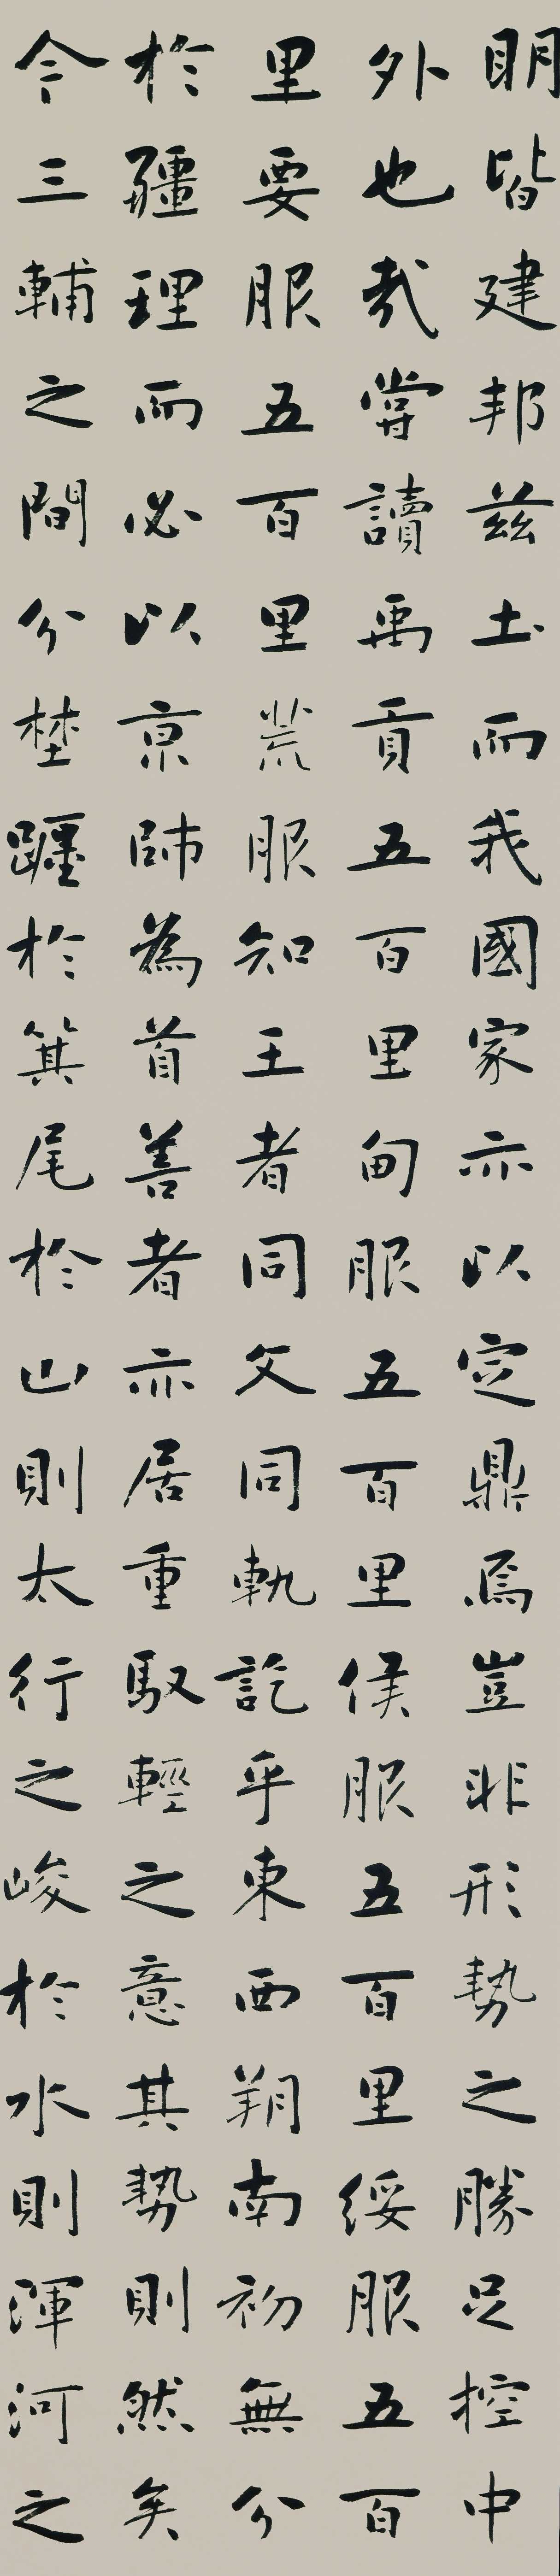 明皆建邦茲土而我國家亦以定鼎焉豈非形勢之勝足控中
外也哉嘗讀禹貢五百里甸服五百里侯服五百里綏服五百
里要服五百里荒服知王者同文同軌訖乎東西朔南初無分
於疆理而必以京師為首善者亦居重馭輕之意其勢則然矣
今三輔之間分埜躔於箕尾於山則太行之峻於水則渾河之